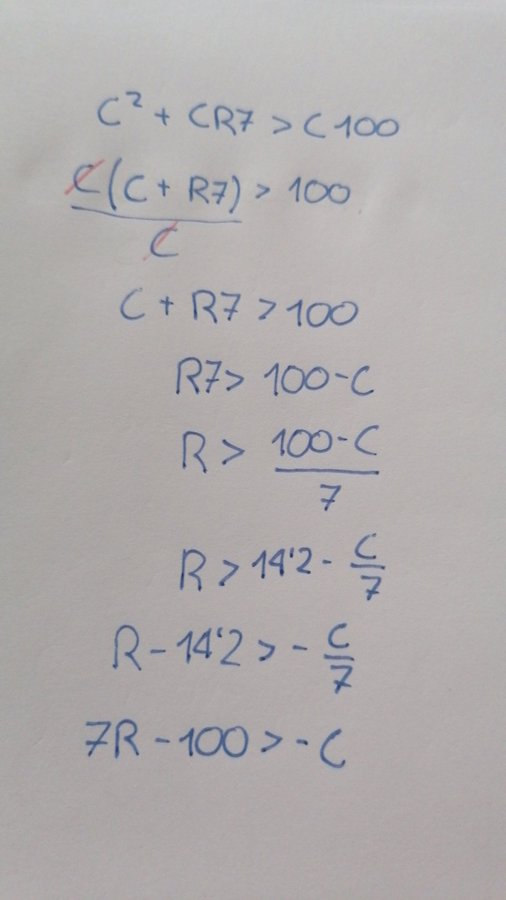 C² + CR7 > C100
C(C + R7) / C > 100
C + R7 > 100
R7 > 100 - C
R > (100 - C) / 7
R > 14'2 - C/7
R - 14'2 > - C/7
7R - 100 > - C